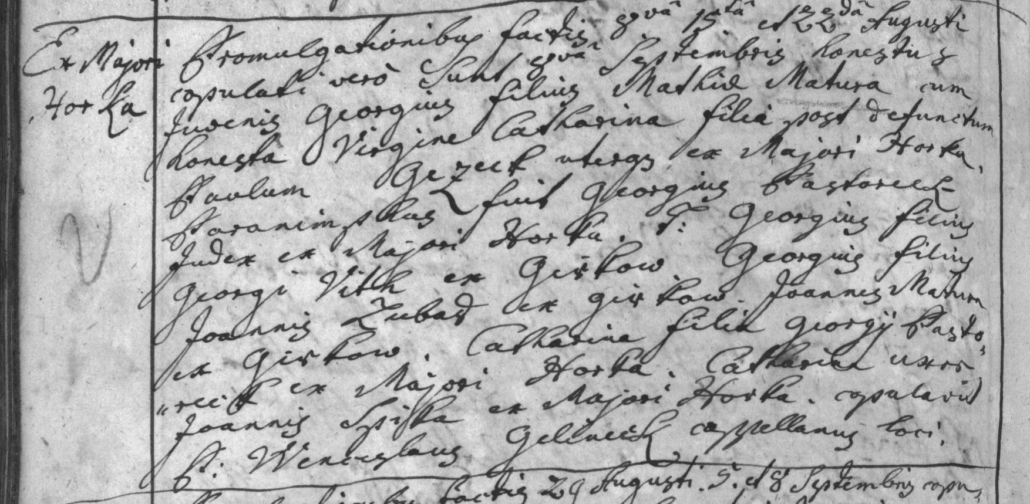 Ex Majori
Horka
Promulgationibus factis 8vâ 15tâ et 22dâ Augusti
copulati verò sunt Septembris honestus
Juvenis Georgius filius Mathiæ Matura cum
honesta Virgine Catharina filia post defunctum
Paulum Gezeck utergz ex Majori Horka.
Paranimphus fuit Georgius Pastoreck
Judex ex Majori Horka. T: Georgius filius
Georgi Vith ex Girkow Georgius filius
Joannis Zubad ex Girkow. Joannes Matura
ex Girkow. Catharina filia Georgij Pasto-
reck ex Majori Horka. Catharina uxor
Joannis Spiska ex Majori Horka. copulavit
P: Wenceslaus Gelineck cappellanus loci.
factis 29 Augusti. 5. et 8 Septembris copu-